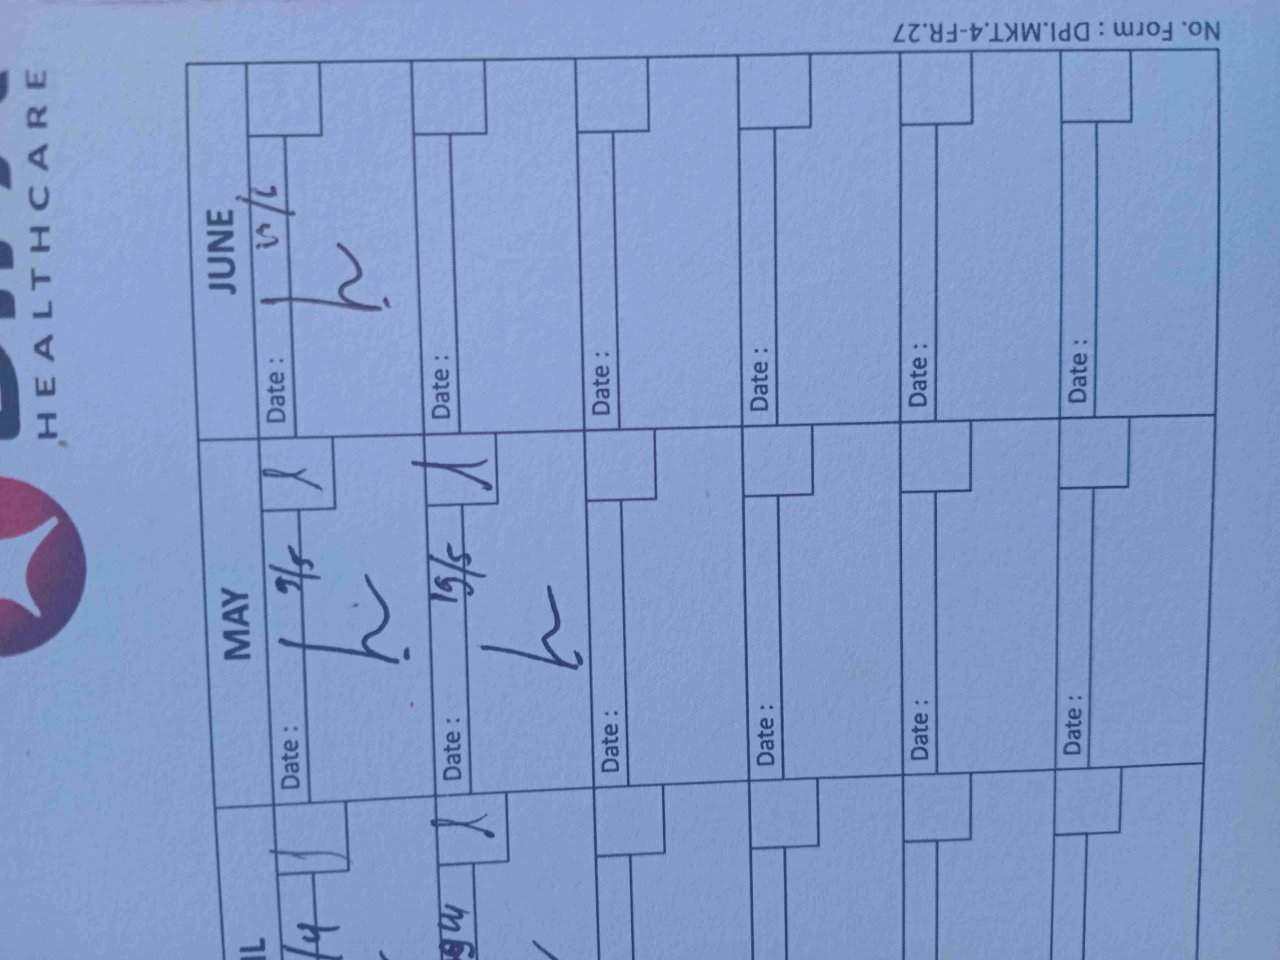 HEALTHCARE
No. Form : DPI.MKT.4-FR.27
MAY JUNE
Date : 9/5 Date :
Date : 19/5 Date :
Date : Date :
Date : Date :
Date : Date :
Date : Date :